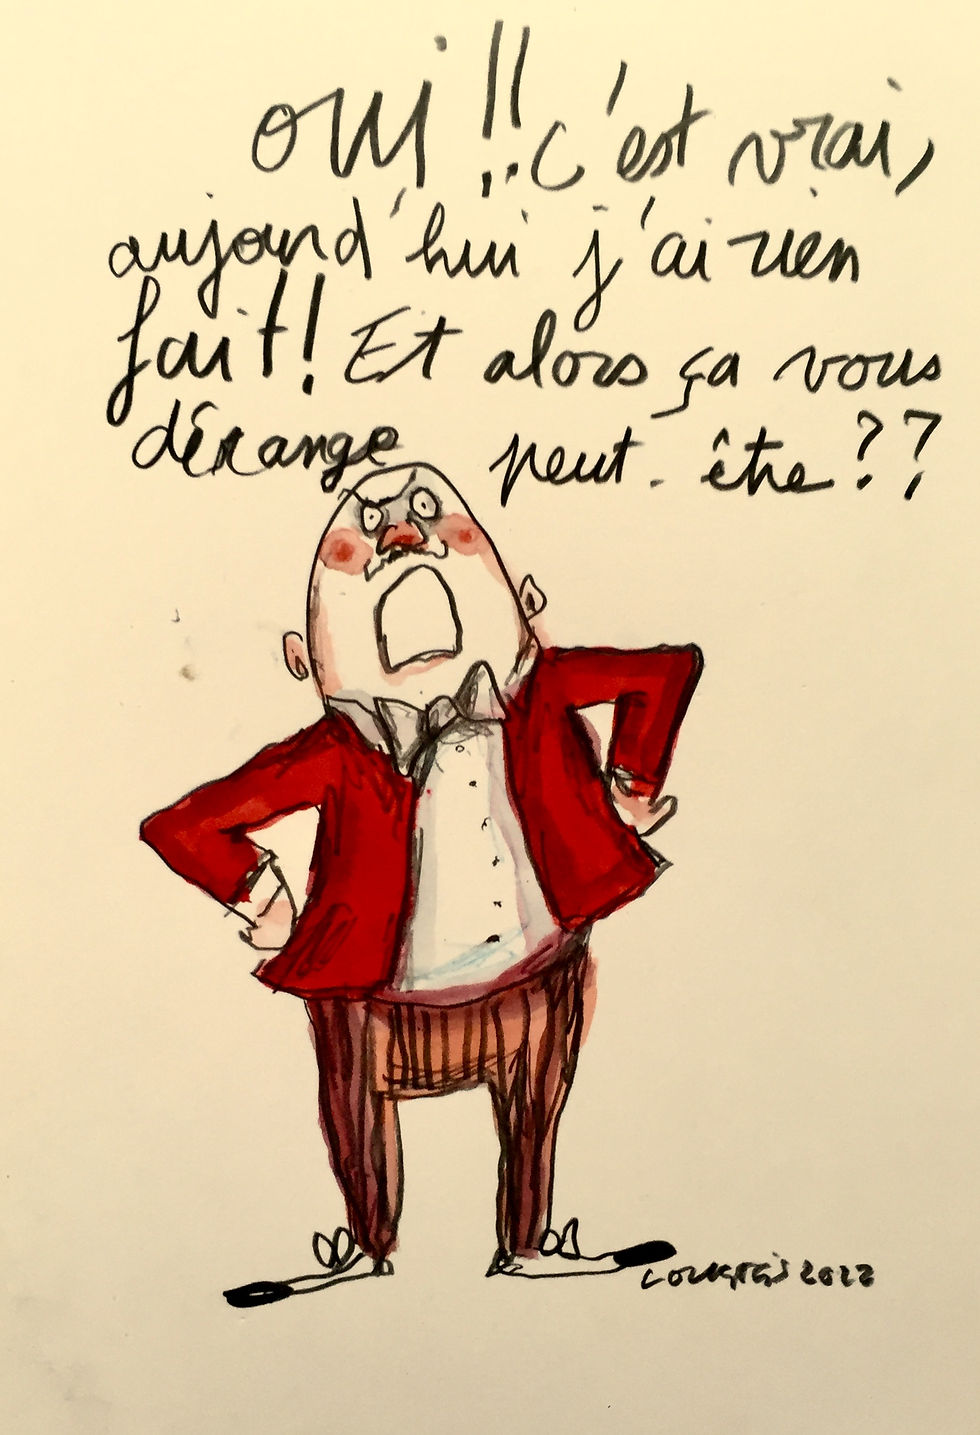 oui !! c'est vrai,
aujourd'hui j'ai rien
fait! Et alors ça vous
dérange peut-être ??
2022